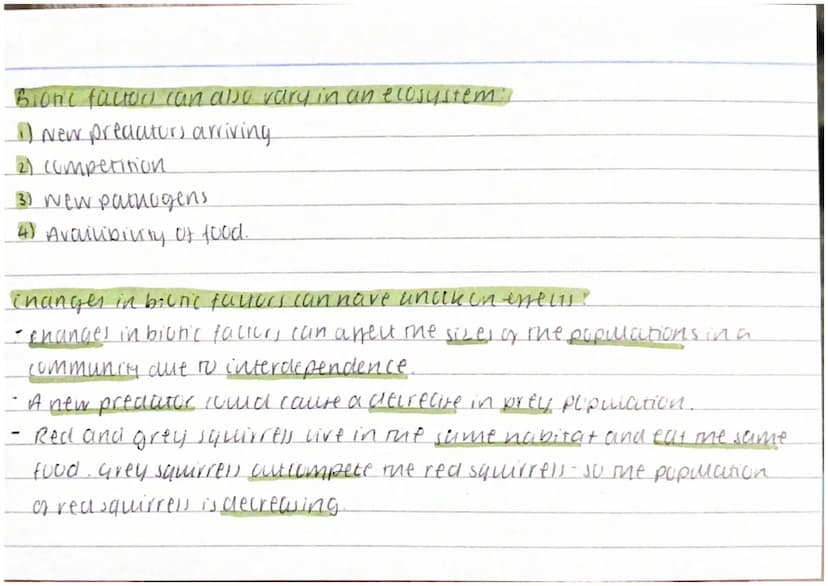 Biotic factors can also vary in an ecosystem:
1) New predators arriving
2) competition
3) New pathogens
4) Availibility of food.
Changes in biotic factors can have a knock on effects:
- changes in biotic factors can affect the sizes of the populations in a
community due to interdependence.
- A new predator could cause a decrease in prey population.
- Red and grey squirrels live in the same habitat and eat the same
food. Grey squirrels outcompete the red squirrels - so the population
of red squirrels is decreasing.